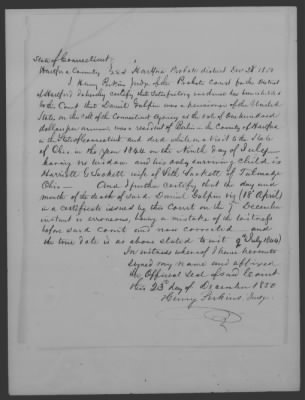 State of Connecticut
Hartford County SS Hartford Probate district Dec 23 1850
I Henry Perkins Judge of the Probate Court for the District
of Hartford do hereby certify that Satisfactory evidence has been
to the Court that Daniel Galpin was a pensioner of the United
States, on the roll of the Connecticut Agency at the rate of One hundred
dollars per annum was a resident of Berlin in the County of Hartford
in the State of Connecticut and died while on a visit to the State
of Ohio in the year 1844 on the Ninth day of July
leaving no widow and his only surviving child is
Harriett G Sackett wife of Seth Sackett of Talmadge
Ohio — And I further certify that the day and
month of the death of said Daniel Galpin viz (18 April)
in a certificate issued by this Court on the 7 December
instant is erroneous, being a mistake of the witness
before said Court and now corrected and
the true date is as above stated to wit 9th July 1844)
In witness whereof I have hereunto
signed my name and affixed
my Official Seal of said Court
this 23d day of December 1850
Henry Perkins Judge